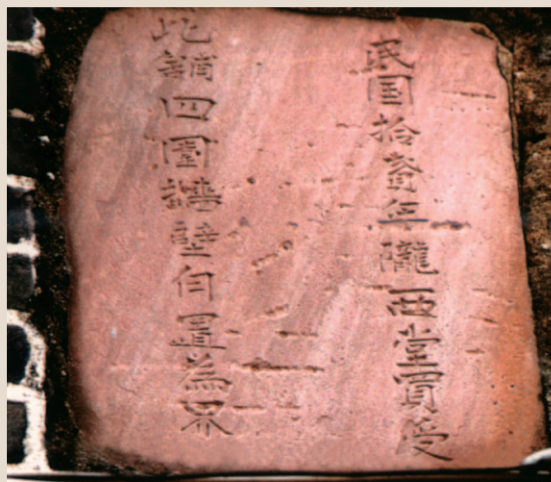 民国拾貳年隴西堂買受
此鋪四圍墻壁自置為界